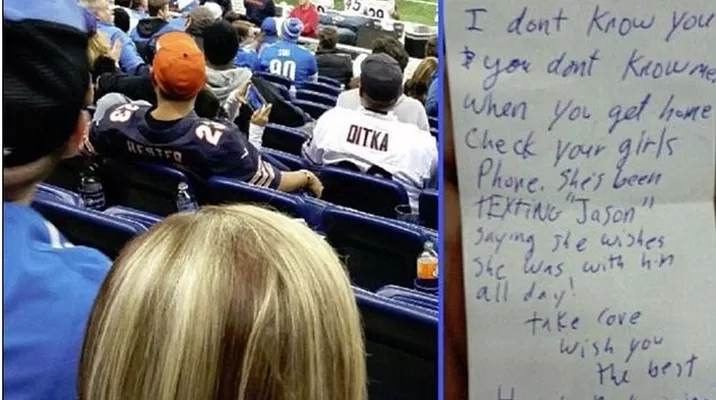 90
23
HESTER
23
DITKA
I dont know you
& you dont know me
when you get home
check your girls
Phone. She's been
TEXTING "Jason"
saying she wishes
she was with him
all day!
take care
wish you
the best